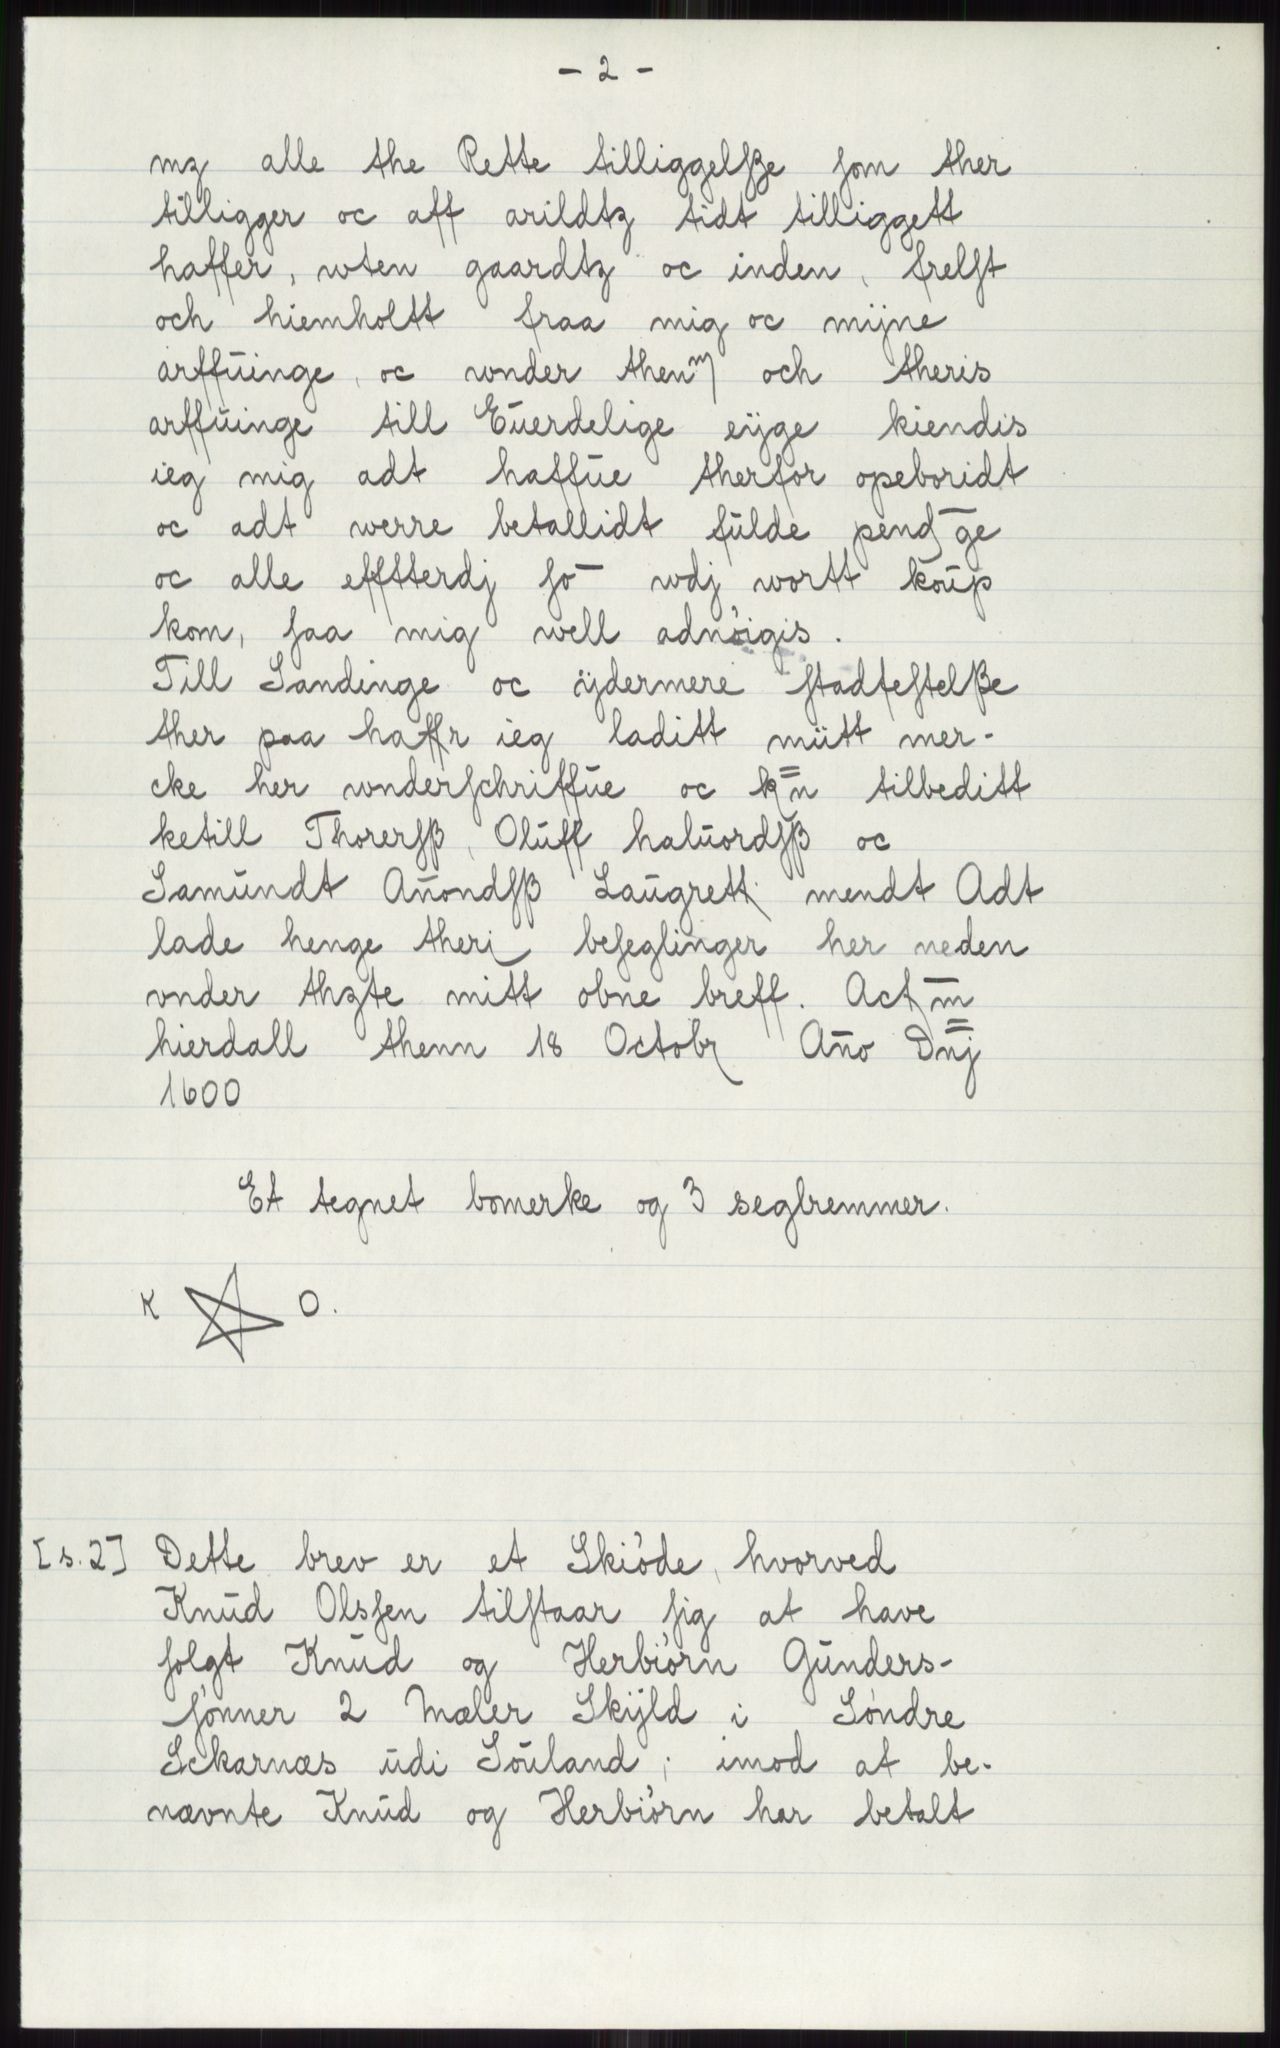 - 2 -
mz alle the Rette tilliggelsße som ther
tilligger oc aff arildtz tidt tilliggett
haffer, wten gaardtz oc inden, frelst
och hiemholtt fraa mig oc mijne
arffuinge, oc wnder then och theris
arffuinge till Euerdelige eijge kiendis
ieg mig adt haffue therfor opeboridt
oc adt werre betallidt fulde
oc alle effterdj so wdj wortt koup
kom, saa mig well adnöigis.
Till Sandinge oc ijdermere stadfestelße
ther paa haffr ieg laditt mitt mer-
cke her wnderschriffue oc tilbeditt
ketill Thorersß, Oluff haluordsß oc
Samundt Añondsß Laugrett mendt Adt
lade henge theri beseglinger her neden
vnder thzte mitt obne breff. Actm
hierdall thenn 18 Octobr Año Dnj
1600
Et tegnet bomerke og 3 seglremmer.
K O.
[s. 2] Dette brev er et Skiöde, hvorved
Knud Olssen tilstaar sig at have
solgt Knud og Herbiörn Gunders-
sönner 2 Mæler Skijld i Söndre
Sckarnæs udi Souland; imod at be-
nævnte Knud og Herbiörn har betalt